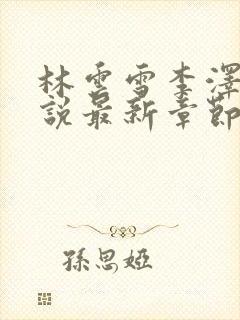 林雲雪李澤
說最新章節
孫思婭